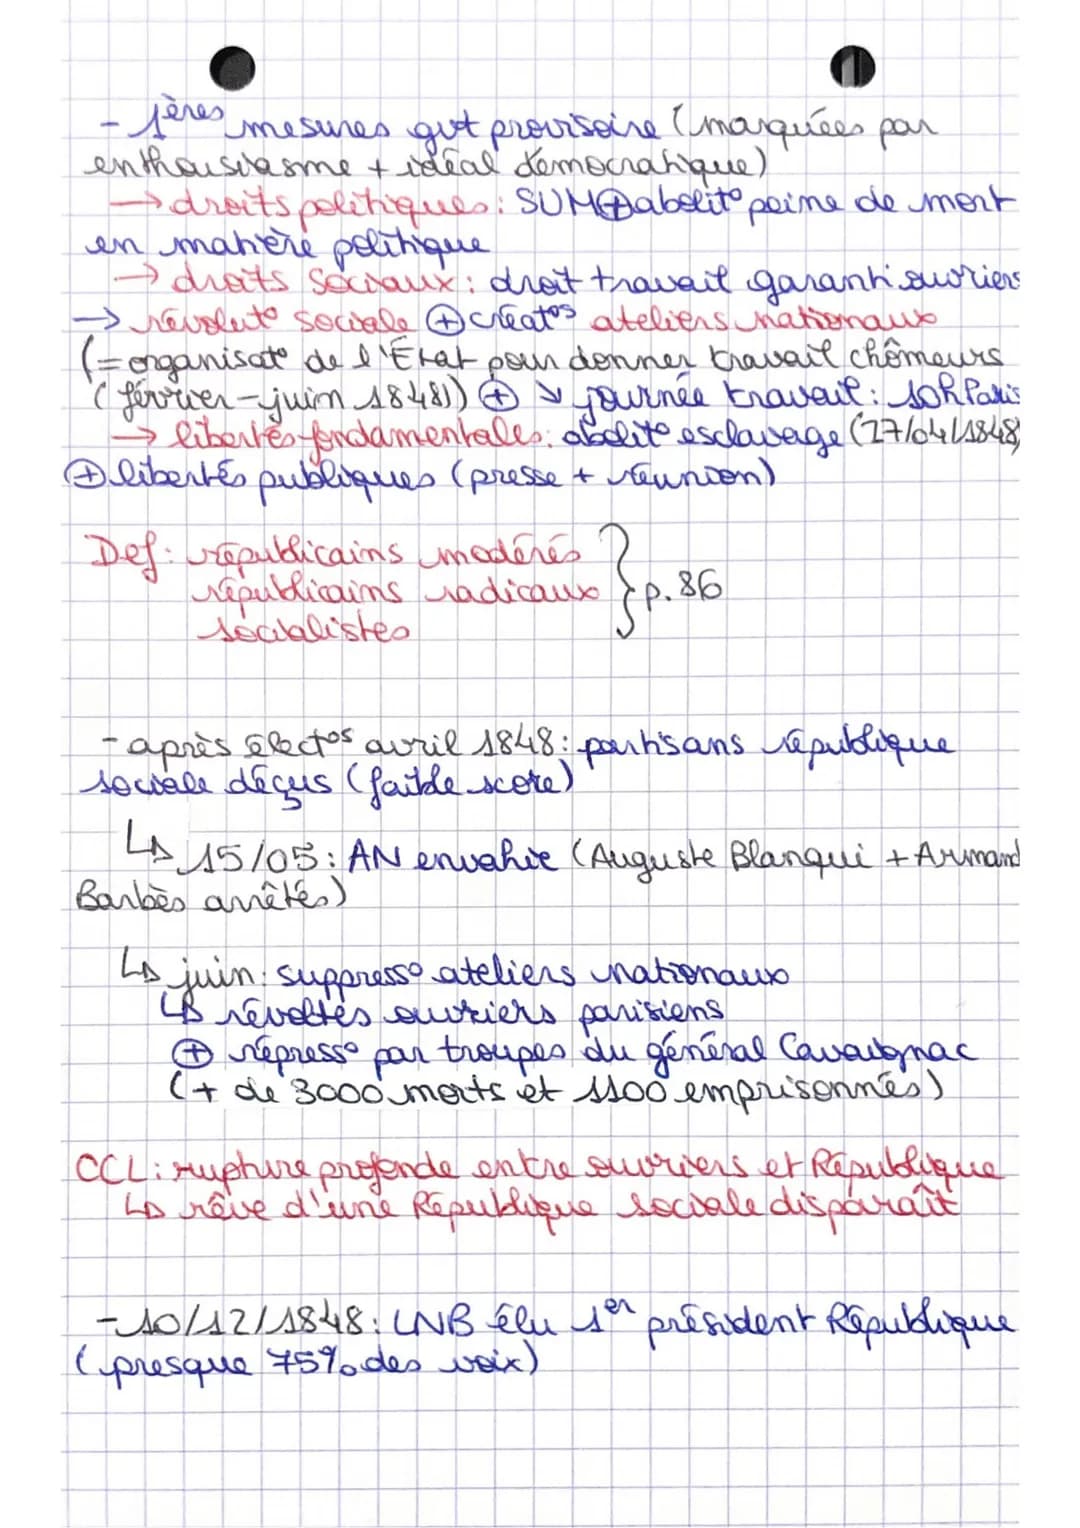 - 1ères mesures gvt provisoire (marquées par
enthousiasme + idéal démocratique)
→ droits politiques : SUM ⊕ abolit° peine de mort
en matière politique
→ droits sociaux : droit travail garanti ouvriers
→ révolut° sociale ⊕ créat°s ateliers nationaux
(= organisat° de l'État pour donner travail chômeurs
(février-juin 1848)) ⊕ ↘ journée travail : 10h Paris
→ libertés fondamentales : abolit° esclavage (27/04/1848)
⊕ libertés publiques (presse + réunion)
Def : républicains modérés
républicains radicaux } p. 86
socialistes
- après élect°s avril 1848 : partisans république
sociale déçus (faible score)
↳ 15/05 : AN envahie (Auguste Blanqui + Armand
Barbès arrêtés)
↳ juin : suppress° ateliers nationaux
↳ révoltés ouvriers parisiens
⊕ répress° par troupes du général Cavaignac
(+ de 3000 morts et 1100 emprisonnés)
CCL : rupture profonde entre ouvriers et République
↳ rêve d'une République sociale disparaît
- 10/12/1848 : LNB élu 1er président République
(presque 75% des voix)